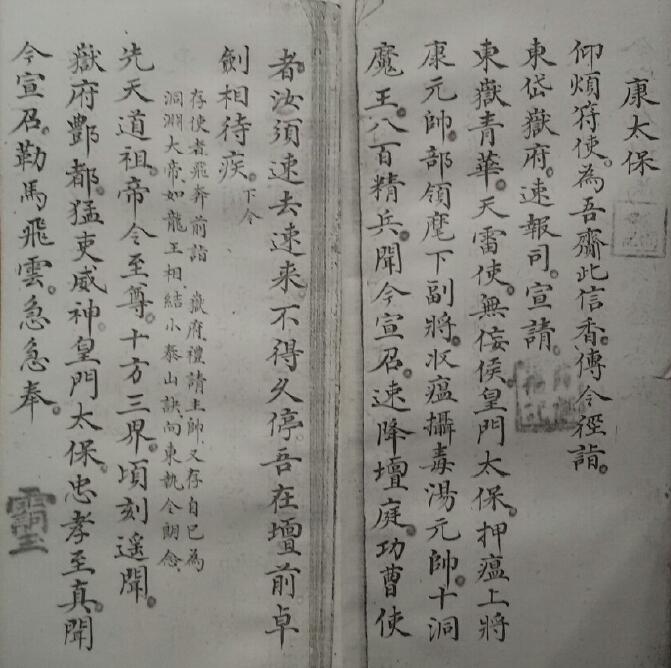 康太保
仰煩符使。為吾齎此信香。傳令徑詣。
東岱嶽府。速報司。宣請。
東嶽青華。天雷使。無侫侯。皇門太保。押瘟上將
康元帥。部領麾下副將。收瘟攝毒湯元帥。十洞
魔王。八百精兵。聞今宣召。速降壇庭。功曹使
者。汝須速去速來。不得久停。吾在壇前卓
劍相待疾。下令
存使者飛奔前詣 嶽府禮請主帥又存自己為
洞淵大帝。如龍王相。結小泰山訣向東執令朗念
先天道祖。帝令至尊。十方三界。頃刻遙聞。
嶽府酆都。猛吏威神。皇門太保。忠孝至真。聞
今宣召。勒馬飛雲。急急奉。